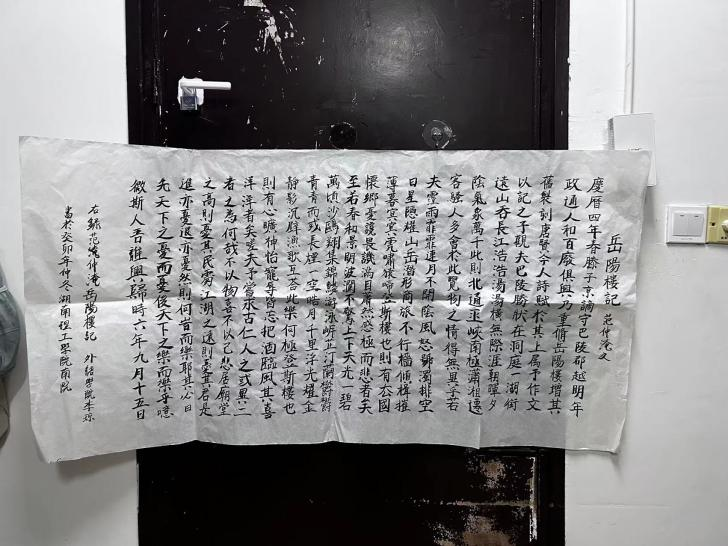 岳陽樓記 范仲淹文
慶曆四年春滕子京謫守巴陵郡越明年
政通人和百廢俱興乃重脩岳陽樓增其
舊製刻唐賢今人詩賦於其上屬予作文
以記之予觀夫巴陵勝狀在洞庭一湖銜
遠山吞長江浩浩湯湯橫無際涯朝暉夕
陰氣象萬千此則北通巫峽南極瀟湘遷
客騷人多會於此覽物之情得無異乎若
夫霪雨霏霏連月不開陰風怒號濁排空
日星隱耀山岳潛形商旅不行檣傾楫摧
薄暮冥冥虎嘯猿啼登斯樓也則有去國
懷鄉憂讒畏譏滿目蕭然感極而悲者矣
至若春和景明波瀾不驚上下天光一碧
萬頃沙鷗翔集錦鱗游泳岸芷汀蘭鬱鬱
青青而或長煙一空皓月千里浮光耀金
靜影沉璧漁歌互答此樂何極登斯樓也
則有心曠神怡寵辱皆忘把酒臨風其喜
洋洋者矣嗟夫予嘗求古仁人之或異二
者之為何哉不以物喜不以己悲居廟堂
之高則憂其民處江湖之遠則憂其君是
進亦憂退亦憂然則何時而樂耶其必曰
先天下之憂而憂後天下之樂而樂乎噫
微斯人吾誰與歸時六年九月十五日
右錄范仲淹岳陽樓記 外語學院李琼
書於癸卯年仲冬湖南理工學院南院